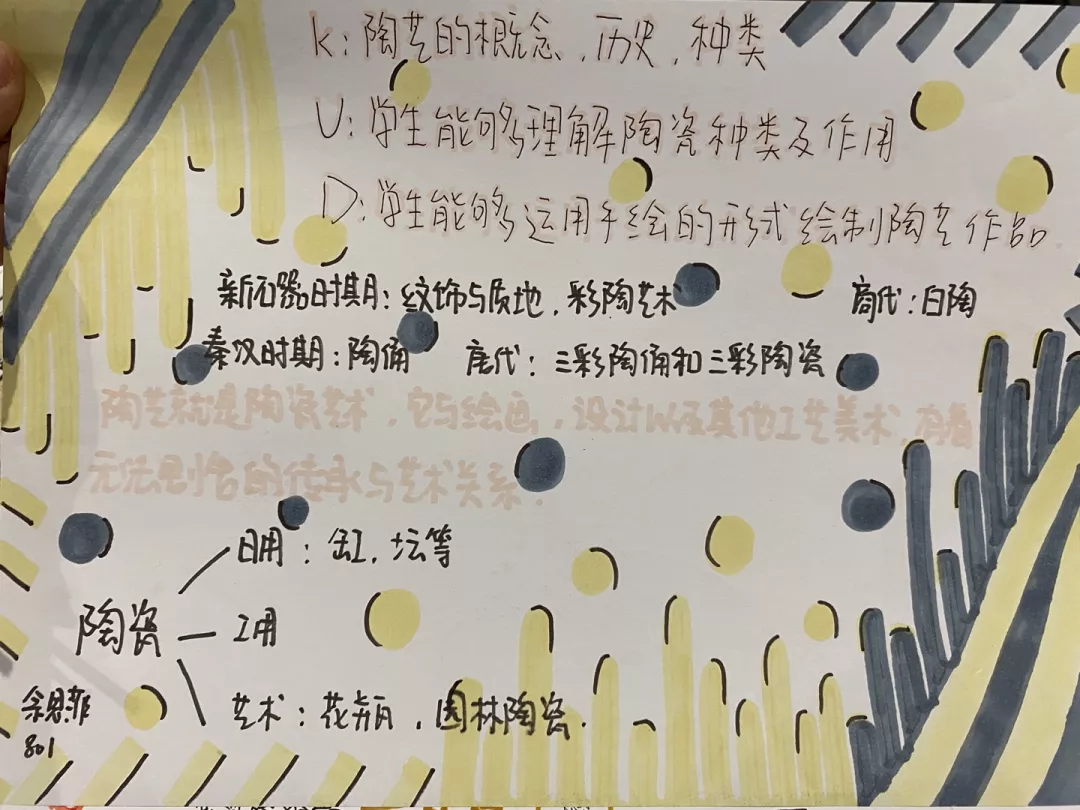 K：陶艺的概念，历史，种类
U：学生能够理解陶瓷种类及作用
D：学生能够运用手绘的形式绘制陶艺作品
新石器时期：纹饰与质地，彩陶艺术 商代：白陶
秦汉时期：陶俑 唐代：三彩陶俑和三彩陶瓷
陶艺就是陶瓷艺术，它与绘画，设计以及其他工艺美术，有着
无法割舍的传承与艺术关系．
日用：缸，坛等
陶瓷
工用
艺术：花瓶，园林陶瓷．
余思菲
801